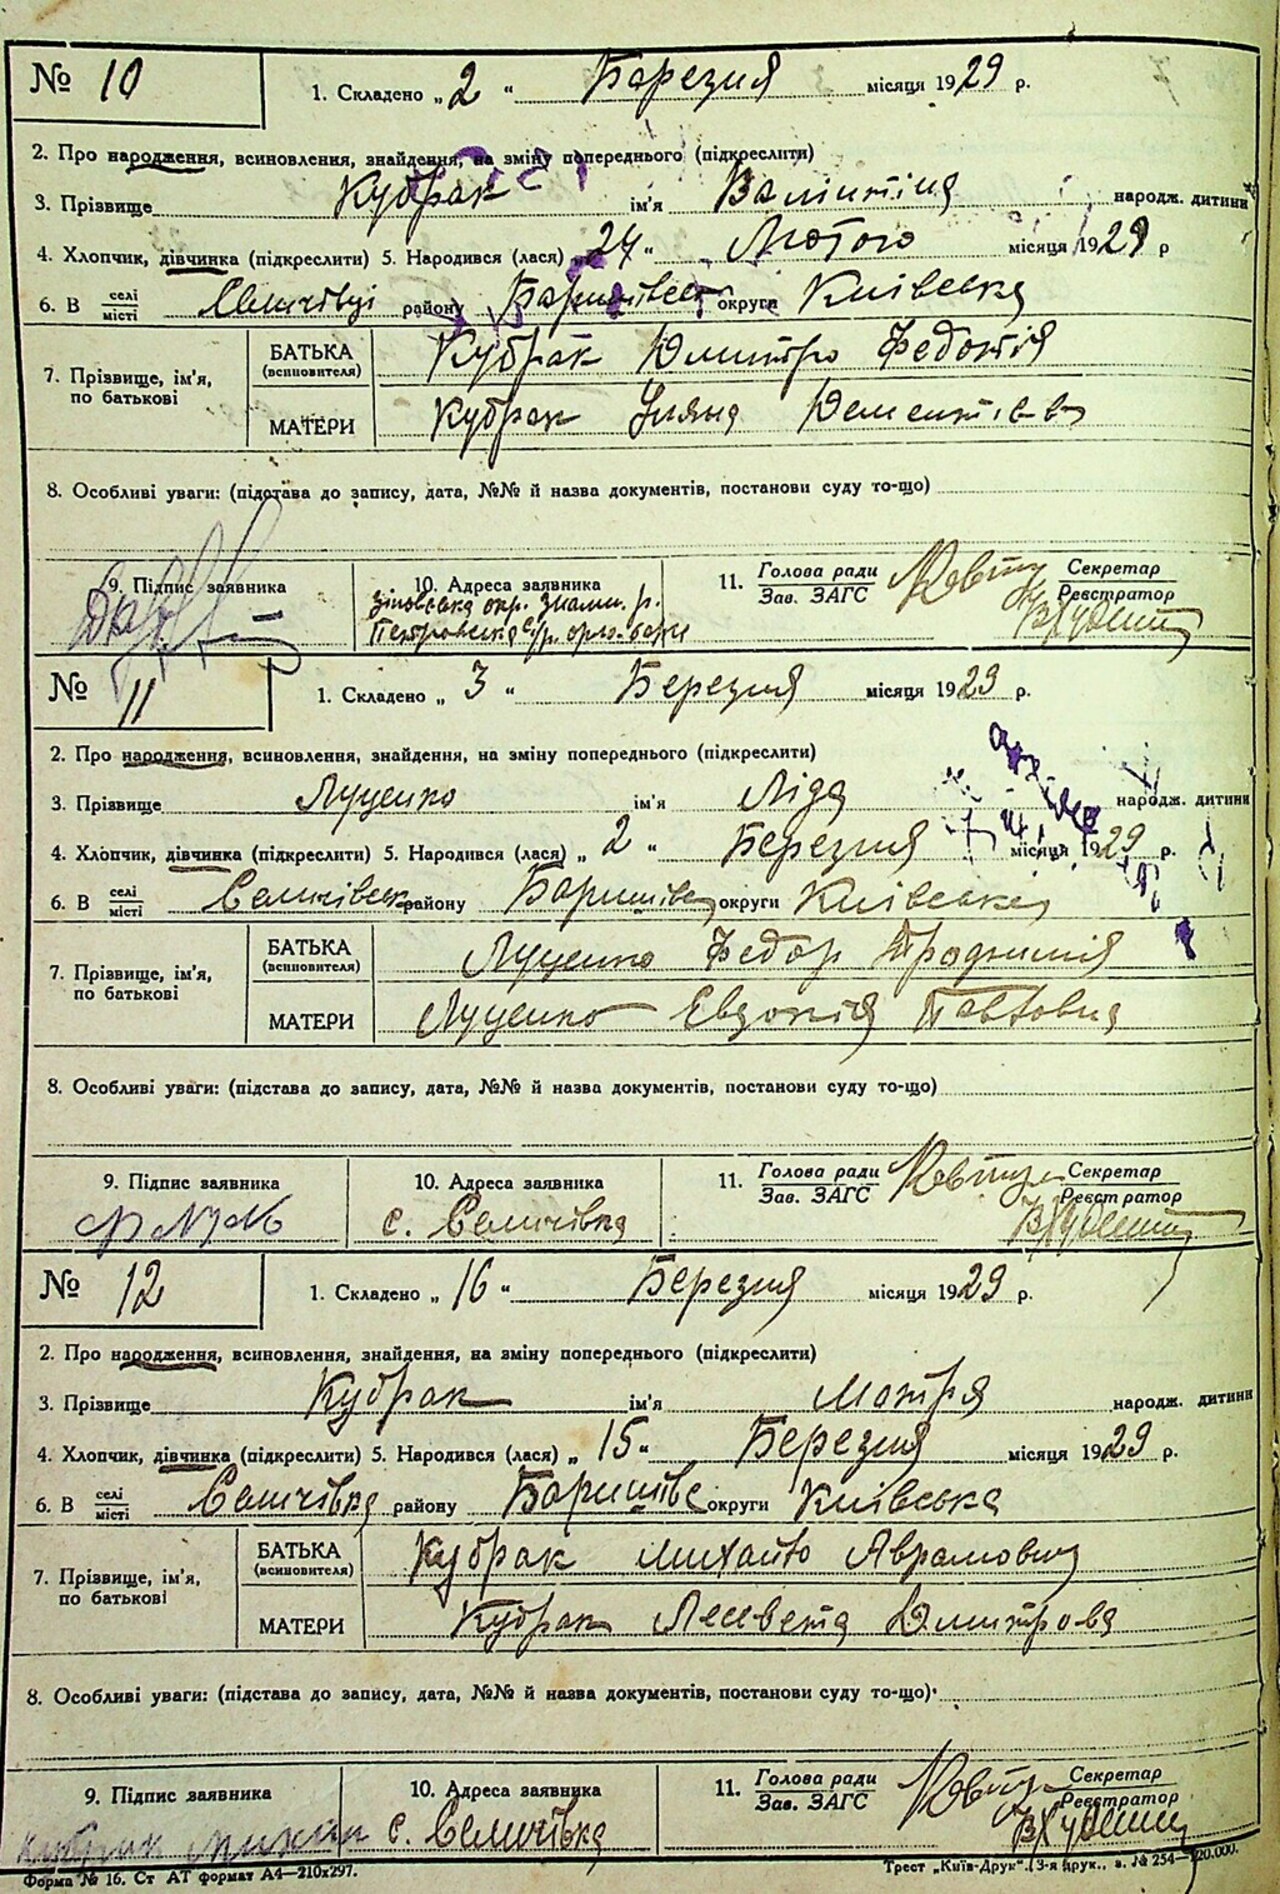 № 10
1. Складено „ 2 “ Березня місяця 1929 р.
2. Про народження, всиновлення, знайдення, на зміну попереднього (підкреслити)
3. Прізвище Кубрак ім'я Валінтіна народж. дитини
4. Хлопчик, дівчинка (підкреслити) 5. Народився (лася) „ 24 “ Лютого місяця 1929 р
6. В селі місті Селичівці району округи Київська
7. Прізвище, ім'я, по батькові
БАТЬКА (всиновителя) Кубрак Дмитро
МАТЕРИ Кубрак Уляна
8. Особливі уваги: (підстава до запису, дата, №№ й назва документів, постанови суду то-що)
9. Підпис заявника 10. Адреса заявника 11. Голова ради Зав. ЗАГС Секретар Реєстратор
окр. р.
№ 11
1. Складено „ 3 “ Березня місяця 1929 р.
2. Про народження, всиновлення, знайдення, на зміну попереднього (підкреслити)
3. Прізвище Луценко ім'я Ліда народж. дитини
4. Хлопчик, дівчинка (підкреслити) 5. Народився (лася) „ 2 “ Березня місяця 1929 р.
6. В селі місті району округи Київська
7. Прізвище, ім'я, по батькові
БАТЬКА (всиновителя) Луценко Федор
МАТЕРИ Луценко Евдокія Павловна
8. Особливі уваги: (підстава до запису, дата, №№ й назва документів, постанови суду то-що)
9. Підпис заявника 10. Адреса заявника 11. Голова ради Зав. ЗАГС Секретар Реєстратор
с. Селичівка
№ 12
1. Складено „ 16 “ Березня місяця 1929 р.
2. Про народження, всиновлення, знайдення, на зміну попереднього (підкреслити)
3. Прізвище Кубрак ім'я Мотря народж. дитини
4. Хлопчик, дівчинка (підкреслити) 5. Народився (лася) „ 15 “ Березня місяця 1929 р.
6. В селі місті Селичівка району Баришівс округи Київська
7. Прізвище, ім'я, по батькові
БАТЬКА (всиновителя) Кубрак Михайло Аврамович
МАТЕРИ Кубрак Лесвета Дмитрова
8. Особливі уваги: (підстава до запису, дата, №№ й назва документів, постанови суду то-що)
9. Підпис заявника 10. Адреса заявника 11. Голова ради Зав. ЗАГС Секретар Реєстратор
с. Селичівка
Форма № 16. Ст АТ формат А4—210x297. Трест „Київ-Друк“. (3-я друк., з. № 254—120.000.